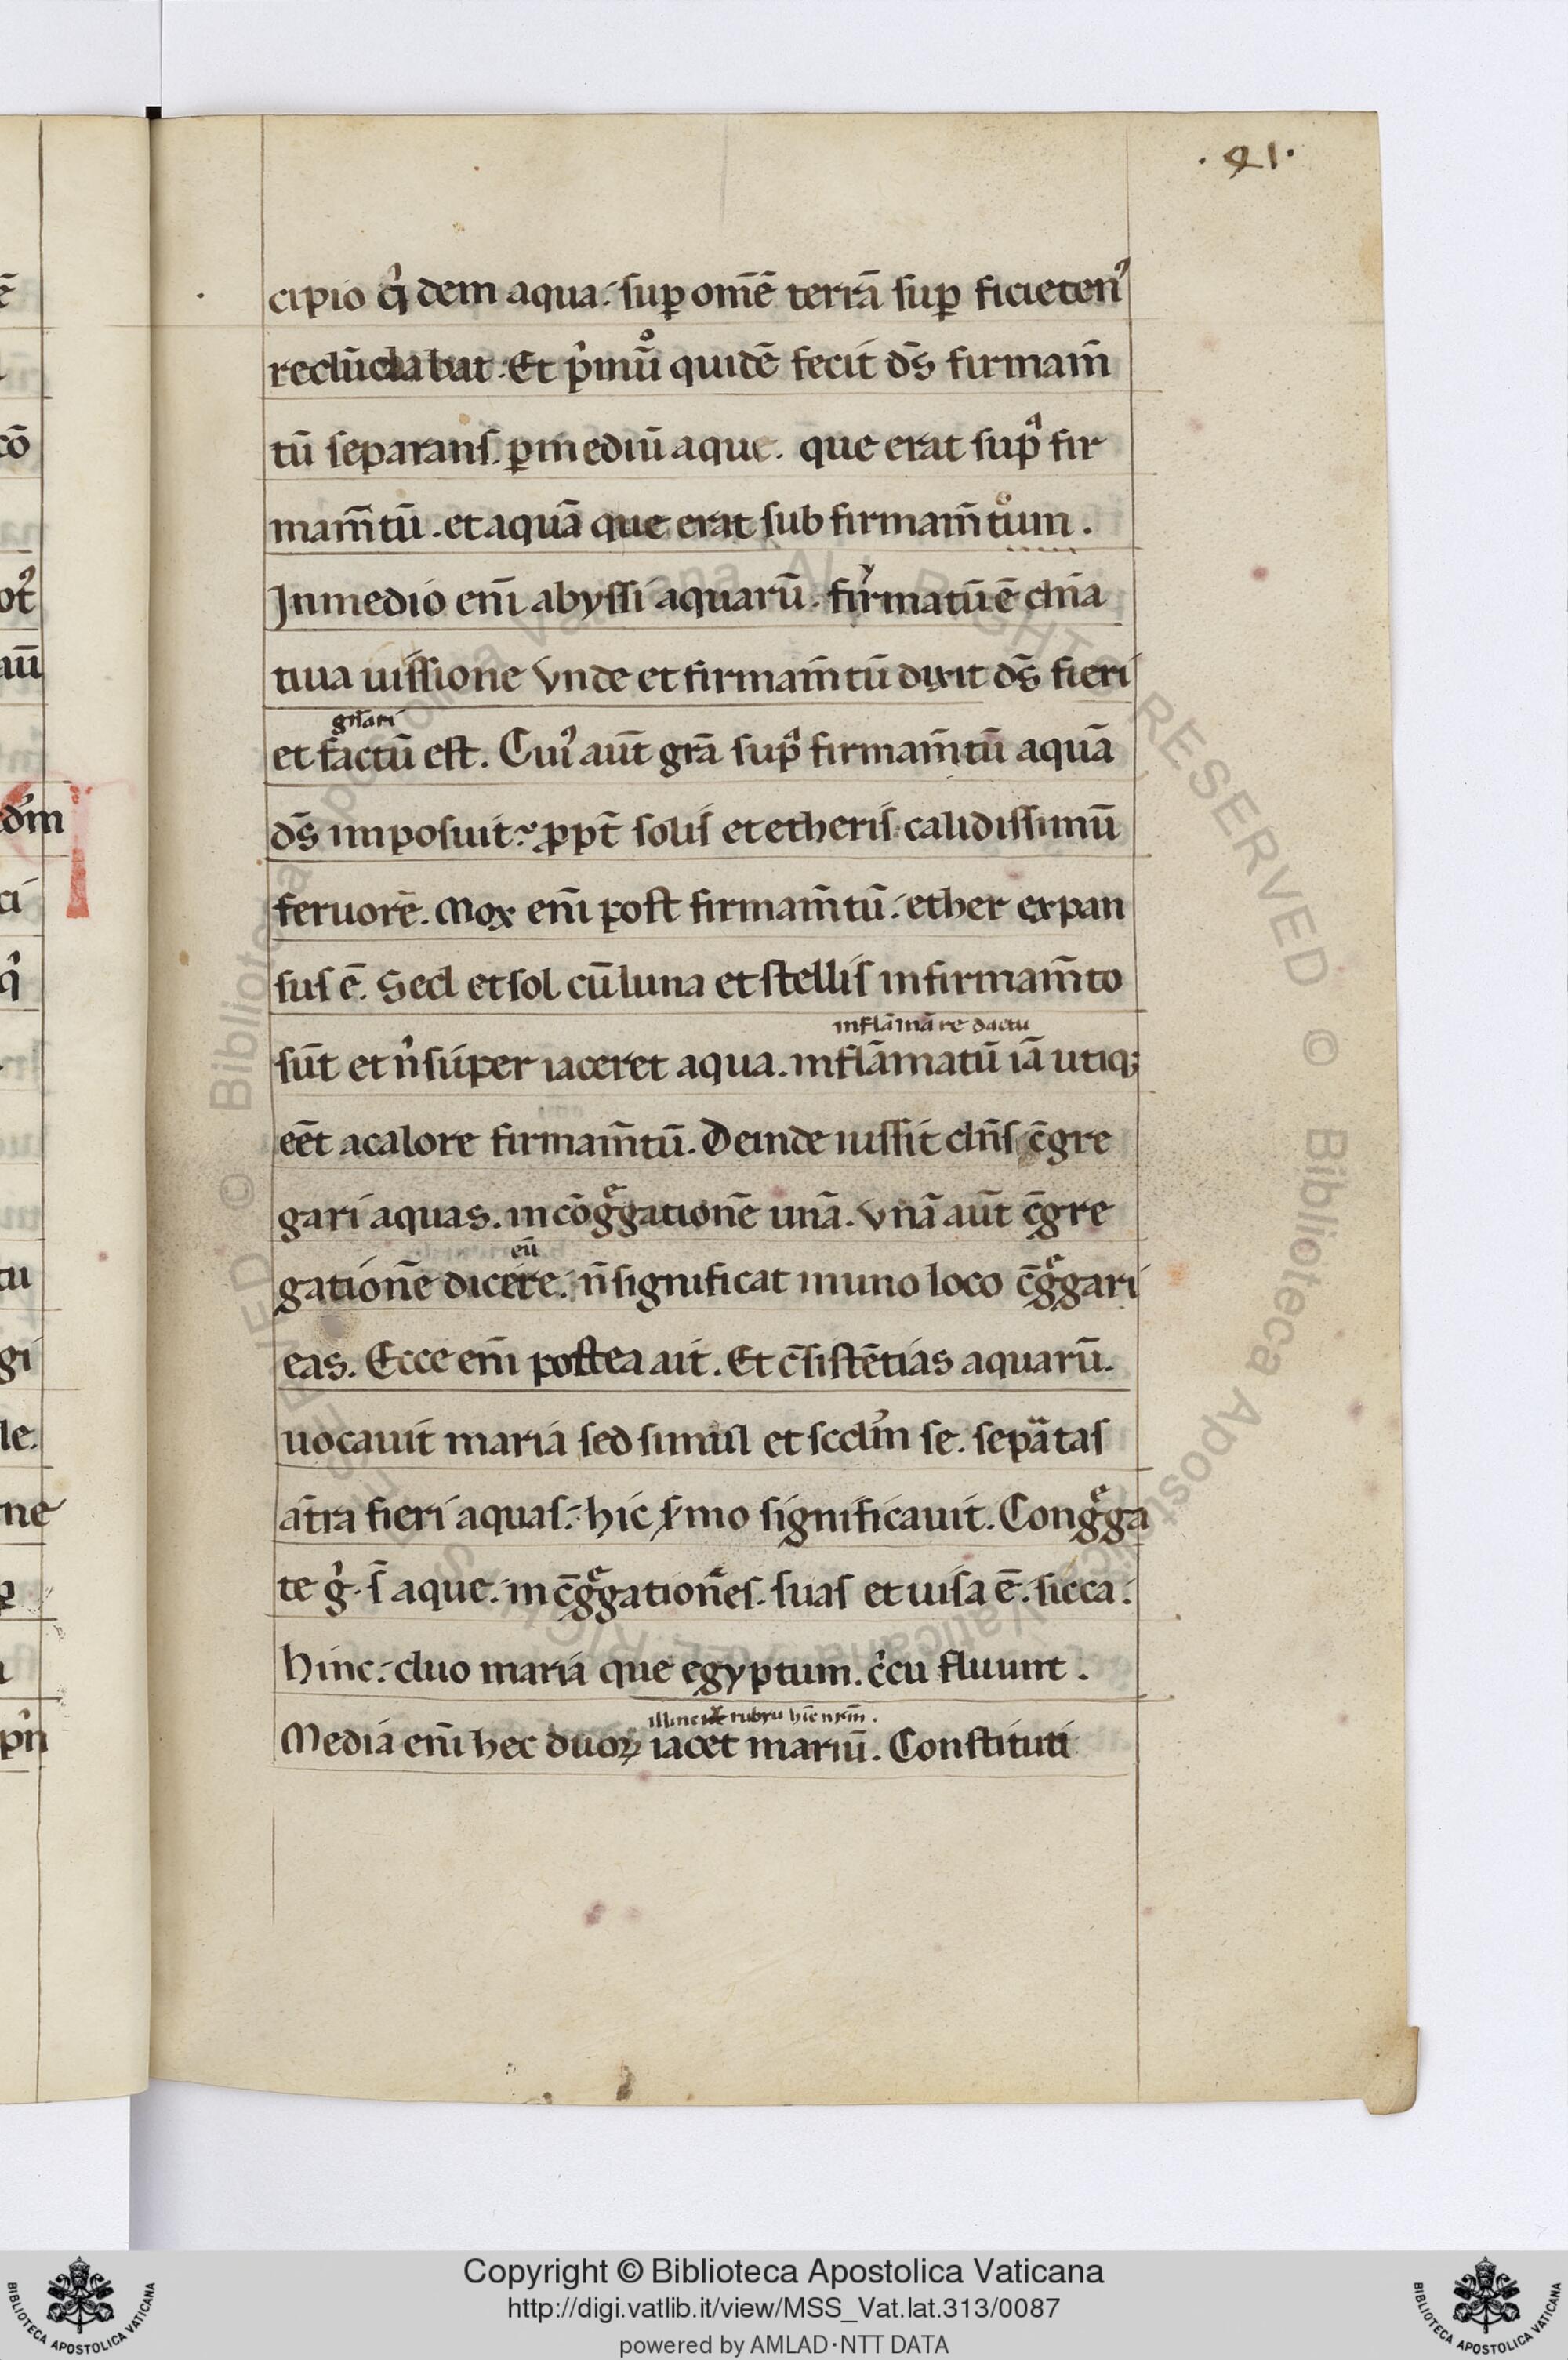 .41.
cipio q̉ dem aqua. sup̲ om̄ē terrā sup̲ ficieten᾽
redūdabat. Et p̉mū° quidē fecit d̄s firmam̄
tū separans. p̲ mediū aque. que erat supͣ fir
mam̄tū. et aquā que erat sub firmam̄tum.
In medio eni̅ abyssi aquarū. firmatū ē dn̄a
tiua iussione vnde et firmam̄tū dixit d̄s fieri
gn̄ari
et factū est. Cui᾽ aut̄ grā supͣ firmam̄tū aquā
d̄s imposuit. ꝓpt̄ solis et etheris calidissimū
feruorē. Mox eni̅ post firmam̄tū. ether expan
sus ē. Sed et sol cū luna et stellis in firmam̄to
inflāmāre dactu
sūt et n̉ super iaceret aqua. inflāmatū iā utiq;
eēt a calore firmam̄tū. Deinde iussit dn̄s c̄gre
gari aquas. in cōgͤgationē unā. vnā aut̄ c̄gre
eu̅
gationē dicere. n̄ significat in uno loco c̄gͤgari
eas. Ecce eni̅ postea ait. Et c̄sistētias aquarū.
uocauit maria sed simul et scd̄m se. sepͣatas
at̄ra fieri aquas. hic s̉mo significauit. Congͤga
te g̉. s̄ aque. in c̄gͤgationes. suas et uisa ē. sicca.
hinc. duo maria que egyptum. c̉cu fluunt.
Media eni̅ hec duoꝝ iacet mariū. Constituti
Copyright © Biblioteca Apostolica Vaticana
http://digi.vatlib.it/view/MSS_Vat.lat.313/0087
powered by AMLAD·NTT DATA